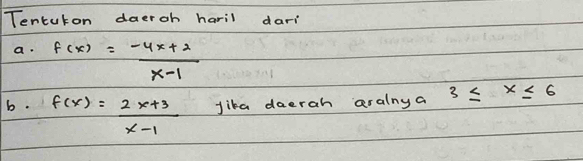 Tentukan daerah haril dari
a. f(x) = -4x+2
x-1
b. f(x) = 2x+3 jika daerah aralnya 3 ≤ x ≤ 6
x-1